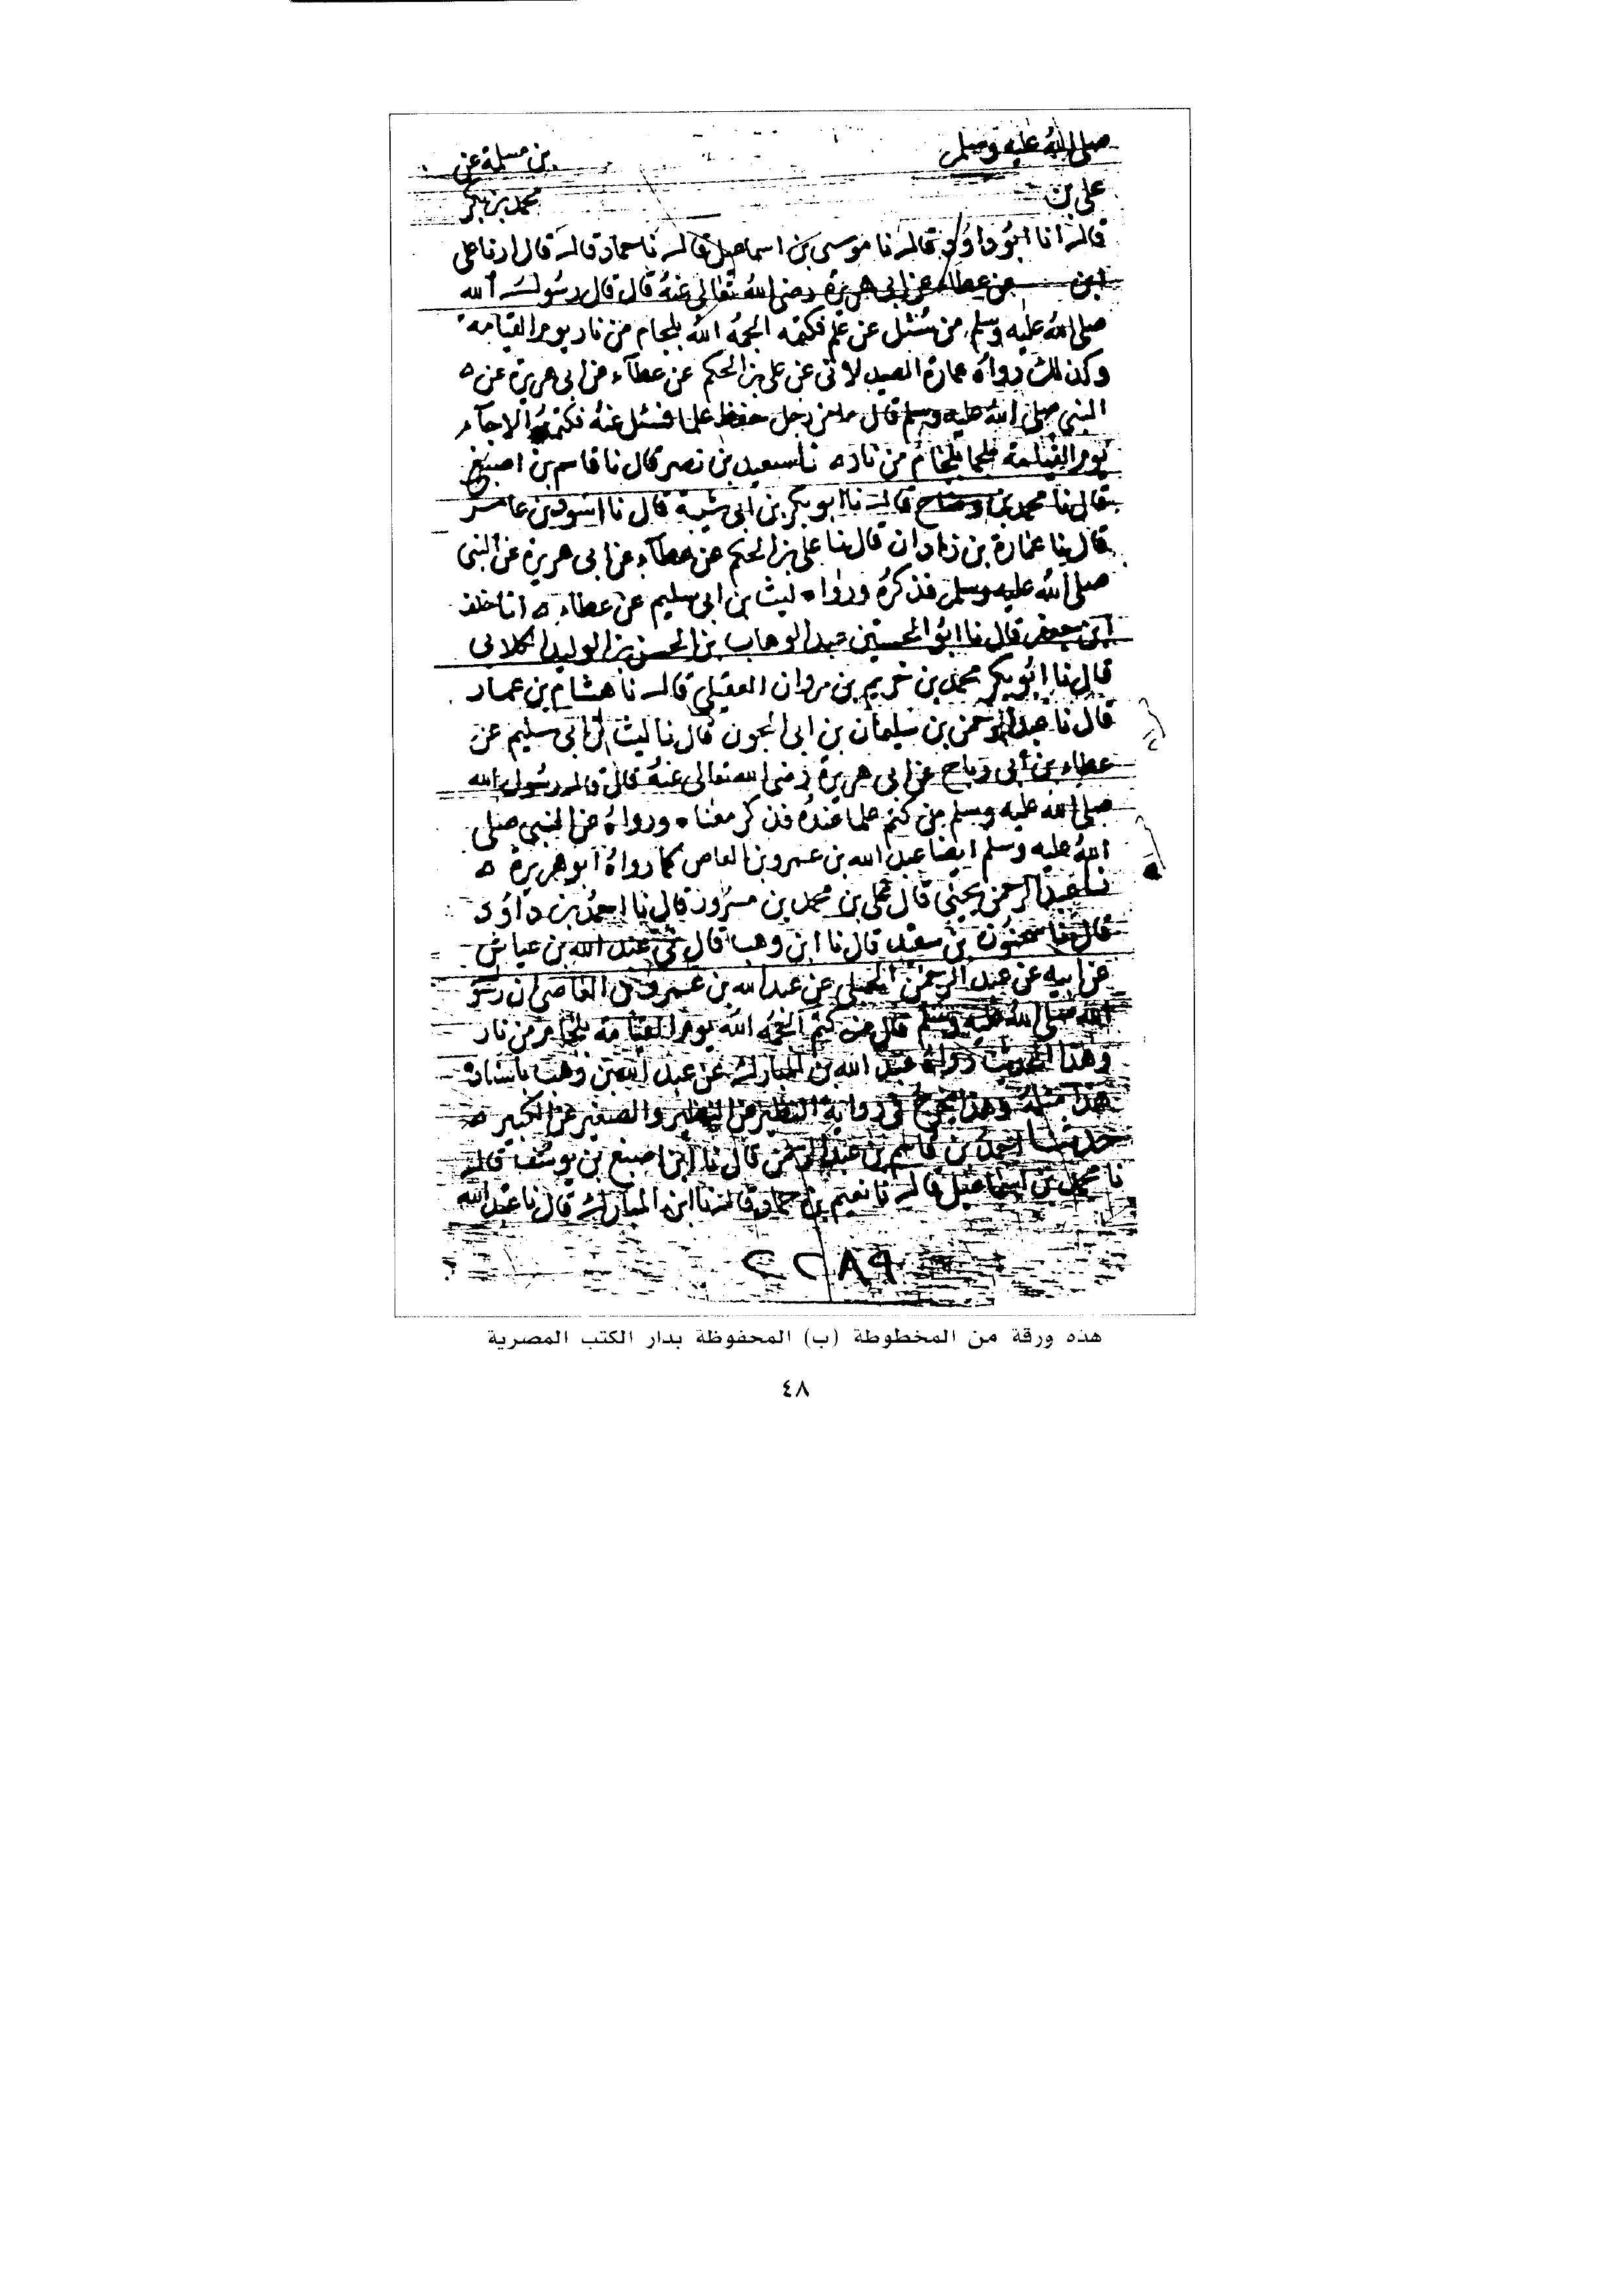 صلى الله عليه وسلم بن مسلمة عن
على بن محمد بن بكر
قال انا ابو داود قال نا موسى بن اسماعيل قال نا حماد قال قال ارنا على
ابن عن عطاء عن ابى هريرة رضى الله تعالى عنه قال قال رسول الله
صلى الله عليه وسلم من سئل عن علم فكتمه الجمه الله بلجام من نار يوم القيامة
وكذلك رواه عمارة الصيدلانى عن على بن الحكم عن عطاء عن ابى هريرة عن
النبى صلى الله عليه وسلم قال ما من رجل حفظ علما فسئل عنه فكتمه الا جاء
يوم القيامة ملجما بلجام من نار نا سعيد بن نصر قال نا قاسم بن اصبغ
قال نا محمد بن وضاح قال نا ابو بكر بن ابى شيبة قال نا اسود بن عامر
قال نا عمارة بن زادان قال نا على بن الحكم عن عطاء عن ابى هريرة عن النبى
صلى الله عليه وسلم فذكره ورواه ليث بن ابى سليم عن عطاء انا خلف
ابن جعفر قال نا ابو الحسين عبد الوهاب بن الحسن بن الوليد الكلابى
قال نا ابو بكر محمد بن خريم بن مروان العقيلى قال نا هشام بن عمار
قال نا عبد الرحمن بن سليمان بن ابى الجون قال نا ليث بن ابى سليم عن
عطاء بن أبى رباح عن ابى هريرة رضى الله تعالى عنه قال قال رسول الله
صلى الله عليه وسلم من كتم علما عنده فذكر معناه ورواه عن النبى صلى
الله عليه وسلم ايضا عبد الله بن عمرو بن العاص كما رواه ابو هريرة
نا عبد الرحمن يحيى قال على بن محمد بن مسرور قال نا احمد بن داود
قال نا سحنون بن سعيد قال نا ابن وهب قال نى عبد الله بن عياش
عن ابيه عن عبد الرحمن الحبلى عن عبد الله بن عمرو بن العاصى ان رسو
الله صلى الله عليه وسلم قال من كتم الجمه الله يوم القيامة بلجام من نار
وهذا الحديث رواه عبد الله بن المبارك عن عبد الله بن وهب باسناد
هذا مثله وهذا يخرج فى رواية النظير عن النظير والصغير عن الكبير
حدثنا احمد بن قاسم بن عبد الرحمن قال نا ابن اصبغ بن يوسف قال
نا محمد بن اسماعيل قال نا نعيم بن حماد قال نا ابن المبارك قال نا عبد الله
هذه ورقة من المخطوطة (ب) المحفوظة بدار الكتب المصرية
٤٨